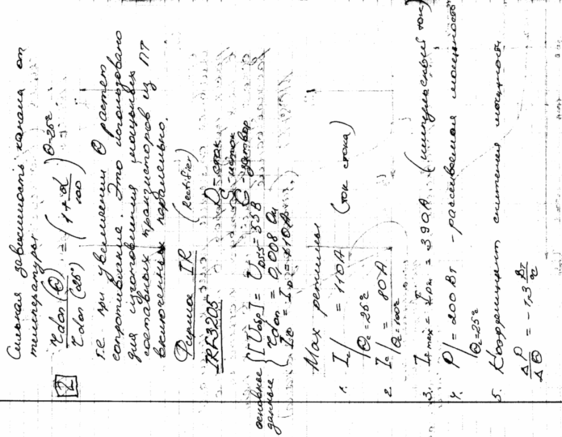 Сильная зависимость канала от
температуры
rdon(Θ) / rdon(25°) = (1 + α/100)^Θ-25°
1
т.е. при увеличении Θ растет
сопротивление. Это использовано
для изготовления мощных
составных транзисторов из ПТ
включенных параллельно.
Фирма IR (Rectifier)
IRF3205
D - сток
S - исток
G - затвор
основные данные
U = UDSS = 55В
rdon = 0,008 Ом
IC = ID = 110А
Max режимы
1. I | Θ=25° = 110А (ток стока)
2. I | Θ=100° = 80А
3. I max = I = 390А (импульсный ток)
4. P | Θ=25° = 200 Вт - рассеиваемая мощность
5. Коэффициент снижения мощности
ΔP / ΔΘ = -1,3 Вт/